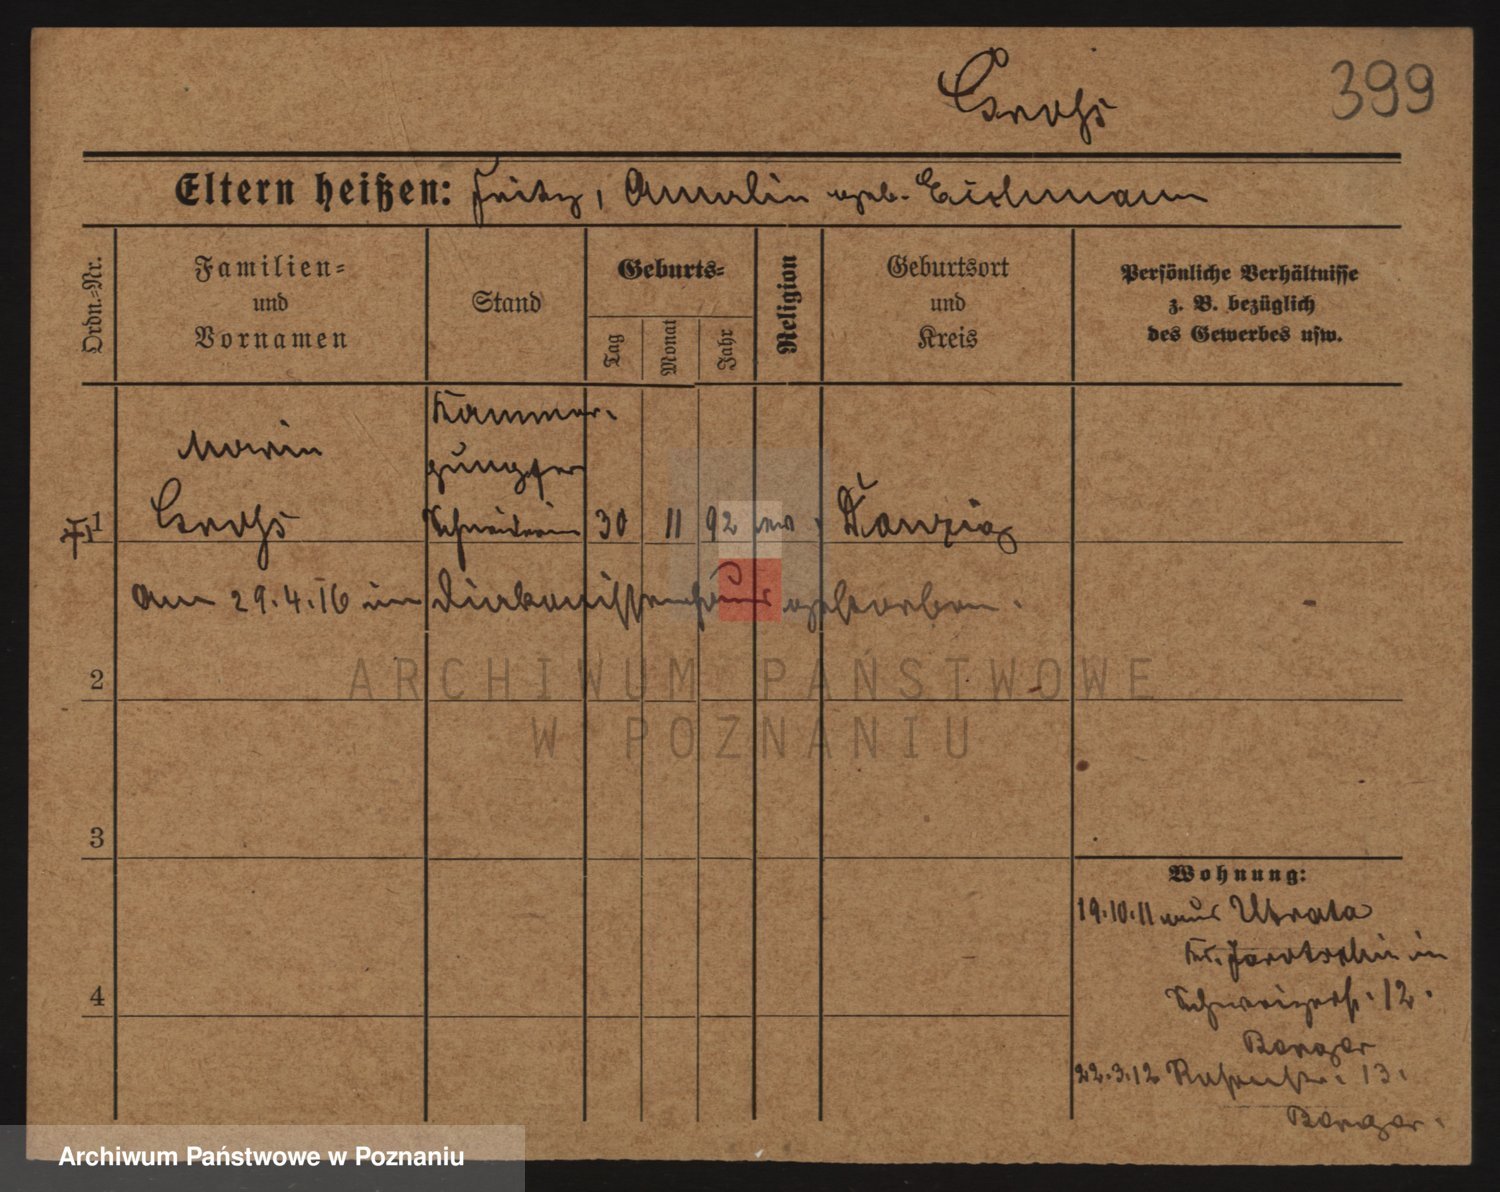 Grohs
399
Eltern heißen: Fritz, Amalie geb. Eichmann
Ordn.=Nr.
Familien=
und
Vornamen
Stand
Geburts=
Tag
Monat
Jahr
Religion
Geburtsort
und
Kreis
Persönliche Verhältnisse
z. B. bezüglich
des Gewerbes usw.
Marie
Grohs
Kammer-
jungfer
Schneiderin
1
30
11
92
ev.
Danzig
Am 29.4.16 im Diakonissenhaus gestorben.
2
3
4
Wohnung:
19.10.11 aus Utrata
Kr. Jarotschin in
12.
Berger
22.3.12
13.
Berger.
ARCHIWUM PAŃSTWOWE
W POZNANIU
Archiwum Państwowe w Poznaniu